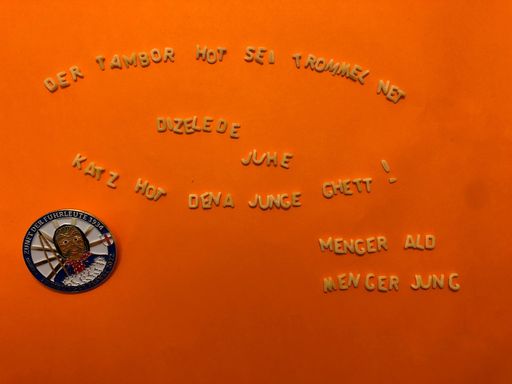 DER TAMBOR HOT SEI TROMMEL NET
DIZELEDE
JUHE
KATZ HOT DENA JUNGE GHETT!
MENGER ALD
MENGER JUNG
ZUNFT DER FUHRLEUTE 1934